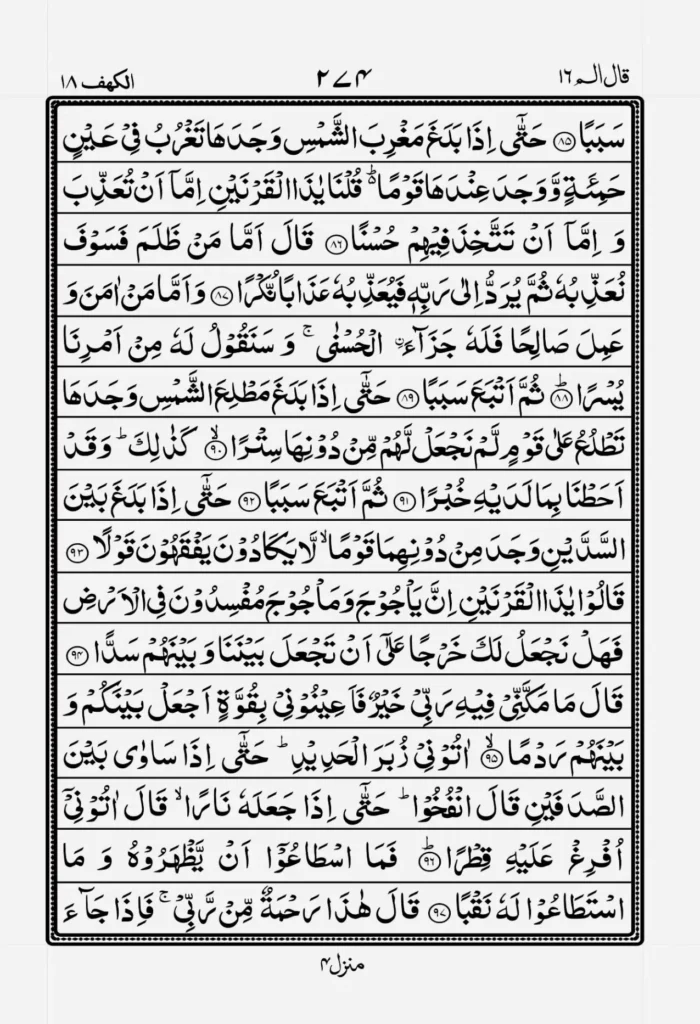 قال الم ١٦
٢٧٤
الكهف ١٨
سَبَبًا ﴿٨٥﴾ حَتّٰۤى اِذَا بَلَغَ مَغْرِبَ الشَّمْسِ وَجَدَهَا تَغْرُبُ فِيْ عَيْنٍ
حَمِئَةٍ وَّ وَجَدَ عِنْدَهَا قَوْمًا ؕ۬ قُلْنَا يٰذَا الْقَرْنَيْنِ اِمَّاۤ اَنْ تُعَذِّبَ
وَ اِمَّاۤ اَنْ تَتَّخِذَ فِيْهِمْ حُسْنًا ﴿٨٦﴾ قَالَ اَمَّا مَنْ ظَلَمَ فَسَوْفَ
نُعَذِّبُهٗ ثُمَّ يُرَدُّ اِلٰى رَبِّهٖ فَيُعَذِّبُهٗ عَذَابًا نُّكْرًا ﴿٨٧﴾ وَ اَمَّا مَنْ اٰمَنَ وَ
عَمِلَ صَالِحًا فَلَهٗ جَزَآءَ ۨ الْحُسْنٰى ۚ وَ سَنَقُوْلُ لَهٗ مِنْ اَمْرِنَا
يُسْرًا ﴿ؕ٨٨﴾ ثُمَّ اَتْبَعَ سَبَبًا ﴿٨٩﴾ حَتّٰۤى اِذَا بَلَغَ مَطْلِعَ الشَّمْسِ وَجَدَهَا
تَطْلُعُ عَلٰى قَوْمٍ لَّمْ نَجْعَلْ لَّهُمْ مِّنْ دُوْنِهَا سِتْرًا ﴿ۙ٩٠﴾ كَذٰلِكَ ؕ وَ قَدْ
اَحَطْنَا بِمَا لَدَيْهِ خُبْرًا ﴿٩١﴾ ثُمَّ اَتْبَعَ سَبَبًا ﴿٩٢﴾ حَتّٰۤى اِذَا بَلَغَ بَيْنَ
السَّدَّيْنِ وَجَدَ مِنْ دُوْنِهِمَا قَوْمًا ۙ لَّا يَكَادُوْنَ يَفْقَهُوْنَ قَوْلًا ﴿٩٣﴾
قَالُوْا يٰذَا الْقَرْنَيْنِ اِنَّ يَاْجُوْجَ وَ مَاْجُوْجَ مُفْسِدُوْنَ فِي الْاَرْضِ
فَهَلْ نَجْعَلُ لَكَ خَرْجًا عَلٰۤى اَنْ تَجْعَلَ بَيْنَنَا وَ بَيْنَهُمْ سَدًّا ﴿٩٤﴾
قَالَ مَا مَكَّنِّيْ فِيْهِ رَبِّيْ خَيْرٌ فَاَعِيْنُوْنِيْ بِقُوَّةٍ اَجْعَلْ بَيْنَكُمْ وَ
بَيْنَهُمْ رَدْمًا ﴿ۙ٩٥﴾ اٰتُوْنِيْ زُبَرَ الْحَدِيْدِ ؕ حَتّٰۤى اِذَا سَاوٰى بَيْنَ
الصَّدَفَيْنِ قَالَ انْفُخُوْا ؕ حَتّٰۤى اِذَا جَعَلَهٗ نَارًا ۙ قَالَ اٰتُوْنِيْۤ
اُفْرِغْ عَلَيْهِ قِطْرًا ﴿ؕ٩٦﴾ فَمَا اسْطَاعُوْۤا اَنْ يَّظْهَرُوْهُ وَ مَا
اسْتَطَاعُوْا لَهٗ نَقْبًا ﴿٩٧﴾ قَالَ هٰذَا رَحْمَةٌ مِّنْ رَّبِّيْ ۚ فَاِذَا جَآءَ
منزل ٤